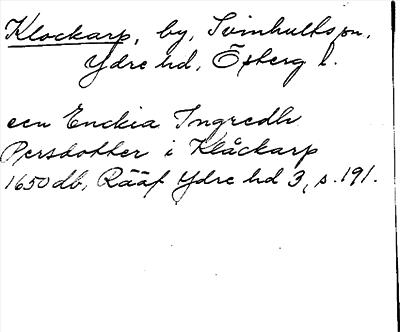 Klockarp, by, Svinhults sn,
Ydre hd, Österg l.
een Enckia Ingredh
Persdotter i Klåckarp
1650 db, Rääf Ydre hd 3, s. 191.